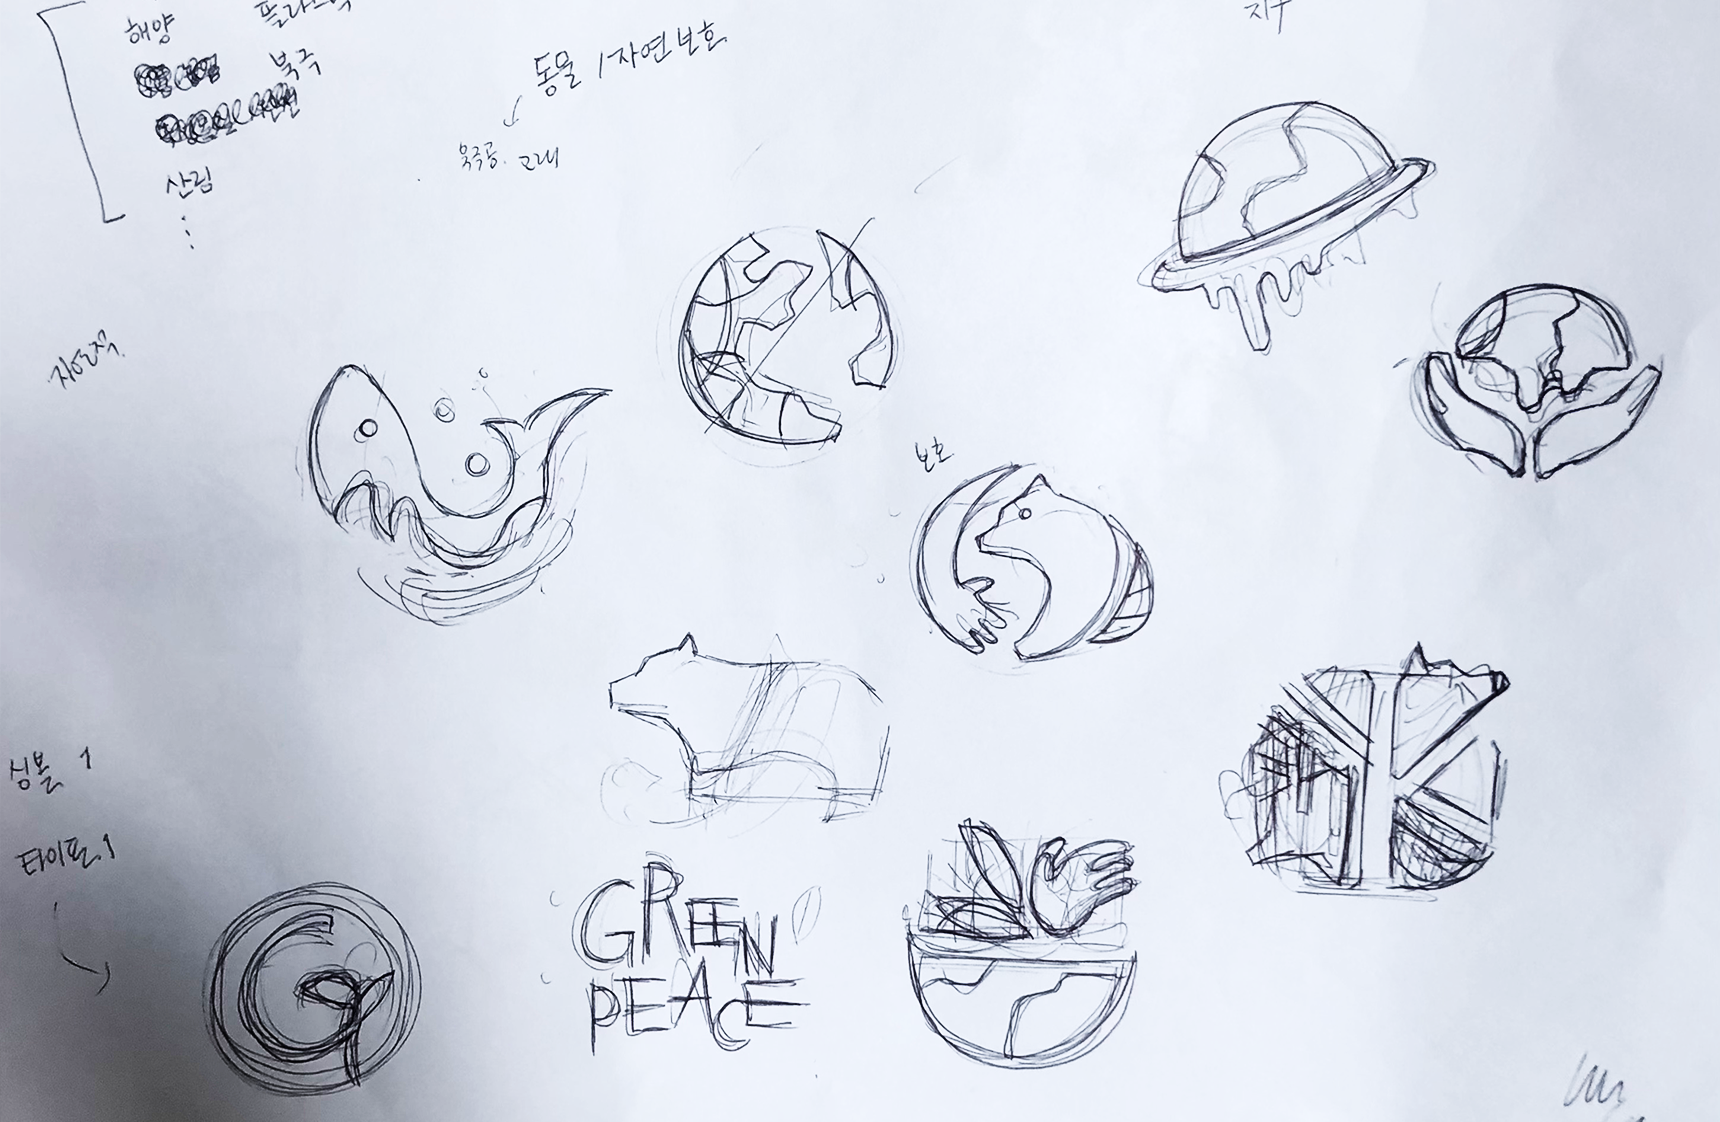 해양
플라스틱
북극
산림
동물 / 자연 보호
북극곰. 고래
지구
보호
심볼 1
타이포 1
GREEN
PEACE